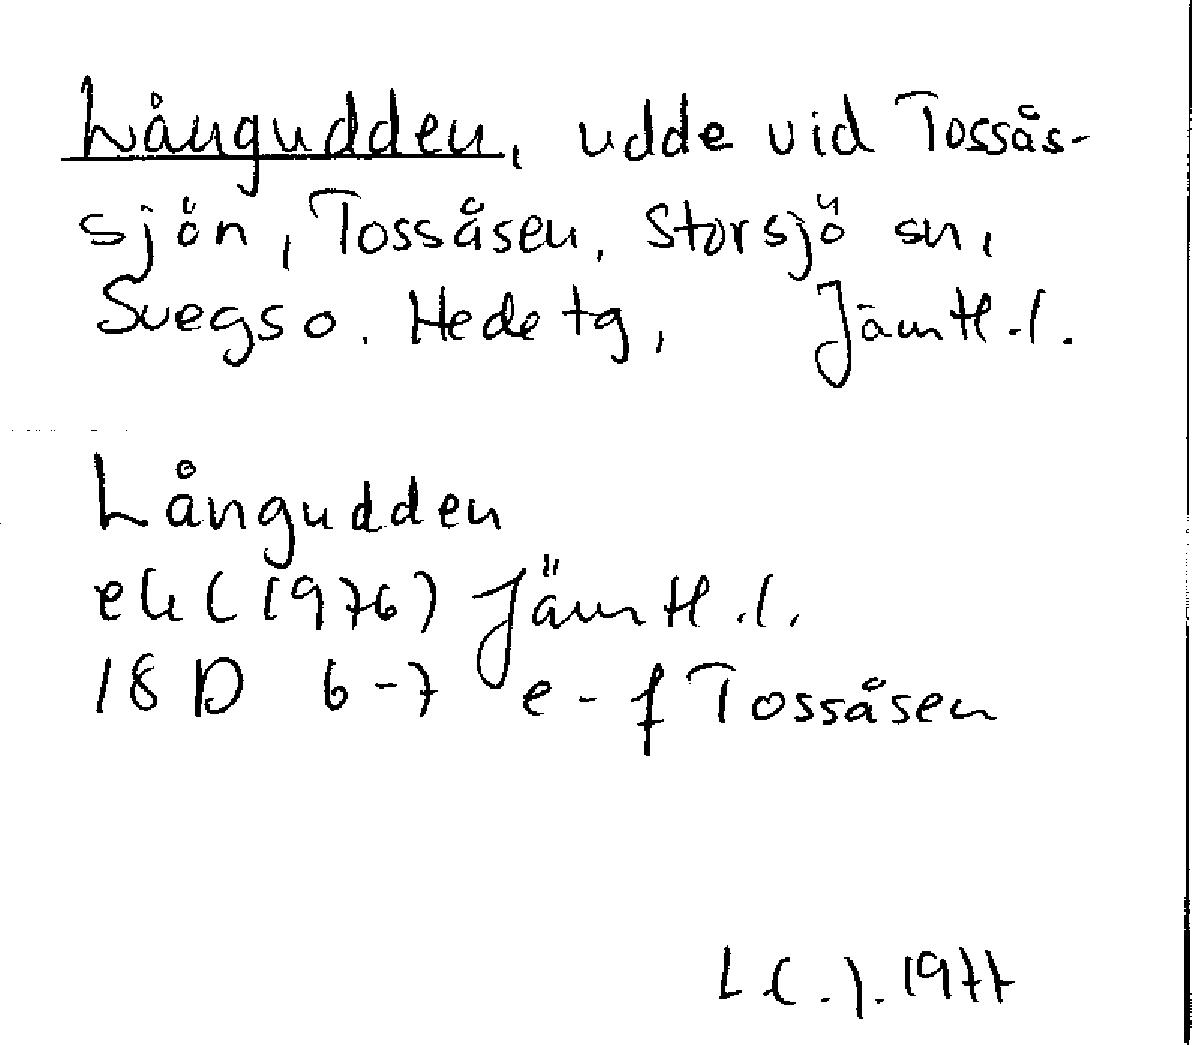 Långudden, udde vid Tossås-
sjön, Tossåsen, Storsjö sn,
Svegs o. Hede tg, Jämtl.l.
Långudden
ek (1976) Jämtl.l.
18 D 6-7 e-f Tossåsen
1977